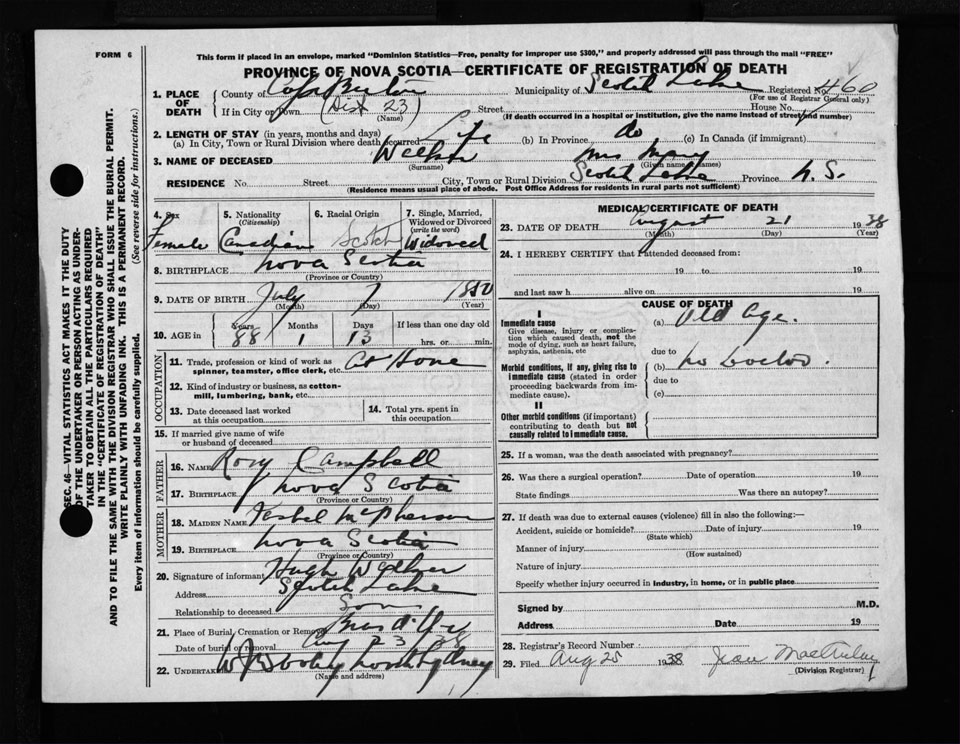 FORM 6
This form if placed in an envelope, marked "Dominion Statistics—Free, penalty for improper use $300," and properly addressed will pass through the mail "FREE"
PROVINCE OF NOVA SCOTIA—CERTIFICATE OF REGISTRATION OF DEATH
1. PLACE OF DEATH
County of Cape Breton Municipality of Scotch Lake Registered No. 460
(For use of Registrar General only)
If in City or Town (Dist 23) Street House No.
(Name) (If death occurred in a hospital or institution, give the name instead of street and number)
2. LENGTH OF STAY (in years, months and days)
(a) In City, Town or Rural Division where death occurred Life (b) In Province do (c) In Canada (if immigrant)
3. NAME OF DECEASED Mrs Mary
(Surname) (Given name or names)
RESIDENCE No. Street City, Town or Rural Division Scotch Lake Province N.S.
(Residence means usual place of abode. Post Office Address for residents in rural parts not sufficient)
4. Sex Female
5. Nationality (Citizenship) Canadian
6. Racial Origin Scotch
7. Single, Married, Widowed or Divorced (write the word) Widowed
8. BIRTHPLACE Nova Scotia
(Province or Country)
9. DATE OF BIRTH July 7 1850
(Month) (Day) (Year)
10. AGE in Years 88 Months 1 Days 13 If less than one day old hrs. or min.
OCCUPATION
11. Trade, profession or kind of work as spinner, teamster, office clerk, etc. At Home
12. Kind of industry or business, as cotton-mill, lumbering, bank, etc.
13. Date deceased last worked at this occupation
14. Total yrs. spent in this occupation
15. If married give name of wife or husband of deceased
FATHER
16. NAME Rory Campbell
17. BIRTHPLACE Nova Scotia
(Province or Country)
MOTHER
18. MAIDEN NAME Isabel McPherson
19. BIRTHPLACE Nova Scotia
(Province or Country)
20. Signature of informant Hugh
Address Scotch Lake
Relationship to deceased Son
21. Place of Burial, Cremation or Removal
Date of burial or removal Aug 23 38
22. UNDERTAKER North Sydney
(Name and address)
MEDICAL CERTIFICATE OF DEATH
23. DATE OF DEATH August 21 1938
(Month) (Day) (Year)
24. I HEREBY CERTIFY that I attended deceased from:
19 to 19
and last saw h alive on 19
CAUSE OF DEATH
I
Immediate cause
Give disease, injury or complication which caused death, not the mode of dying, such as heart failure, asphyxia, asthenia, etc
(a) Old Age.
due to
Morbid conditions, if any, giving rise to immediate cause (stated in order proceeding backwards from immediate cause).
(b) No Doctor.
due to
(c)
II
Other morbid conditions (if important) contributing to death but not causally related to immediate cause.
25. If a woman, was the death associated with pregnancy?
26. Was there a surgical operation? Date of operation 19
State findings Was there an autopsy?
27. If death was due to external causes (violence) fill in also the following:—
Accident, suicide or homicide? Date of injury 19
(State which)
Manner of injury
(How sustained)
Nature of injury
Specify whether injury occurred in industry, in home, or in public place
Signed by M.D.
Address Date 19
28. Registrar's Record Number
29. Filed Aug 25 1938 Jean MacAulay
(Division Registrar)
SEC. 46—VITAL STATISTICS ACT MAKES IT THE DUTY
OF THE UNDERTAKER OR PERSON ACTING AS UNDER-
TAKER TO OBTAIN ALL THE PARTICULARS REQUIRED
IN THE "CERTIFICATE OF REGISTRATION OF DEATH"
AND TO FILE THE SAME WITH THE DIVISION REGISTRAR WHO SHALL ISSUE THE BURIAL PERMIT.
WRITE PLAINLY WITH UNFADING INK. THIS IS A PERMANENT RECORD.
Every item of information should be carefully supplied. (See reverse side for instructions.)